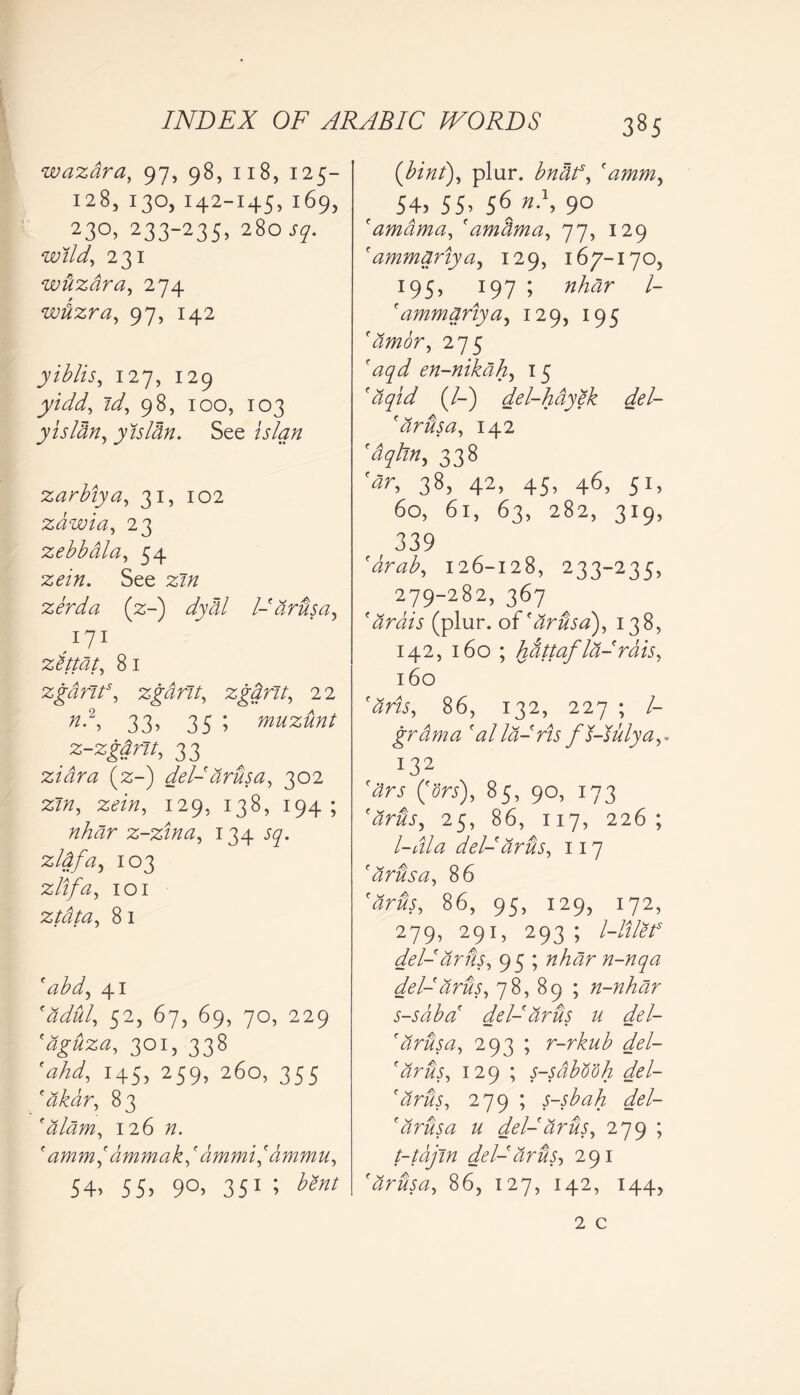 INDEX OF ARABIC WORDS
385
wazâra, 97, 98, 118, 125-
128, 130, 142-145, 169,
230, 233-235, 280 sq.
wîld, 231
wûzâra, 274
wûzra, 97, 142
yiblis, 127, 129
yidd, īd, 98, 100, 103
yislän, yīslän. See islạn
zarbîya, 31, 102
zâwia, 23
zebbâla, 54
zein. See zīn
zérda (z-) dyāl l-ʿărûṣa,
171
zĕṭṭāṭ, 81
zgârītˢ, zgârīt, zgạrīt, 22
n.², 33, 35 ; muzûnt
z-zgạrīt, 33
ziâra (z-) deḷ-ʿărûṣa, 302
zīn, zein, 129, 138, 194 ;
nhār z-zîna, 134 sq.
zlạfa, 103
zlîfa, 101
zṭâṭa, 81
ʿabd, 41
ʿădûl, 52, 67, 69, 70, 229
ʿăgûza, 301, 338
ʿahd, 145, 259, 260, 355
ʿăkâr, 83
ʿălâm, 126 n.
ʿamm, ʿâmmak, ʿâmmi, ʿâmmu,
54, 55, 90, 351 ; bĕnt
(bint), plur. bnätˢ, ʿamm,
54, 55, 56 n.¹, 90
ʿamâma, ʿamāma, 77, 129
ʿammạrîya, 129, 167-170,
195, 197 ; nhār l-
ʿammạrîya, 129, 195
ʿămôr, 275
ʿaqd en-nikāḥ, 15
ʿăqid (l-) del-ḥâyĕk del-
ʿărûṣa, 142
ʿâqlīn, 338
ʿār, 38, 42, 45, 46, 51,
60, 61, 63, 282, 319,
339
ʿârab, 126-128, 233-235,
279-282, 367
ʿărâis (plur. of ʿărûsa), 138,
142, 160 ; ḫâṭṭaf lă-ʿrâis,
160
ʿărîs, 86, 132, 227 ; l-
grâma ʿal lă-ʿrîs f š-šûlya,
132
ʿărs (ʿörs), 85, 90, 173
ʿărûs, 25, 86, 117, 226 ;
l-lîla del-ʿărûs, 117
ʿărûsa, 86
ʿărûṣ, 86, 95, 129, 172,
279, 291, 293 ; l-lîlĕtˢ
del-ʿărûṣ, 95 ; nhār n-nqa
del-ʿărûṣ, 78, 89 ; n-nhār
s-sâbaʿ del-ʿărûṣ u del-
ʿărûṣa, 293 ; r-rkub del-
ʿărûṣ, 129 ; ṣ-ṣâbŏŏḥ del-
ʿărûṣ, 279 ; ṣ-ṣbaḥ del-
ʿărûṣa u del-ʿărûṣ, 279 ;
ṭ-ṭâjīn del-ʿărûṣ, 291
ʿărûṣa, 86, 127, 142, 144,
2 C